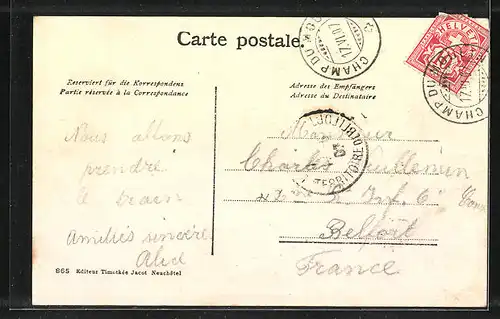 Carte postale
HELVETIA
CHAMP DU
17.VI.07
CHAMP DU
Reserviert für die Korrespondenz
Partie réservée à la Correspondance
Adresse des Empfängers
Adresse du Destinataire
Nous allons
prendre
le train
Amitiés sincère
Alice
Monsieur
Charles
Belfort
France
TERRITOIRE DE BELFORT
865 Editeur Timothée Jacot Neuchâtel